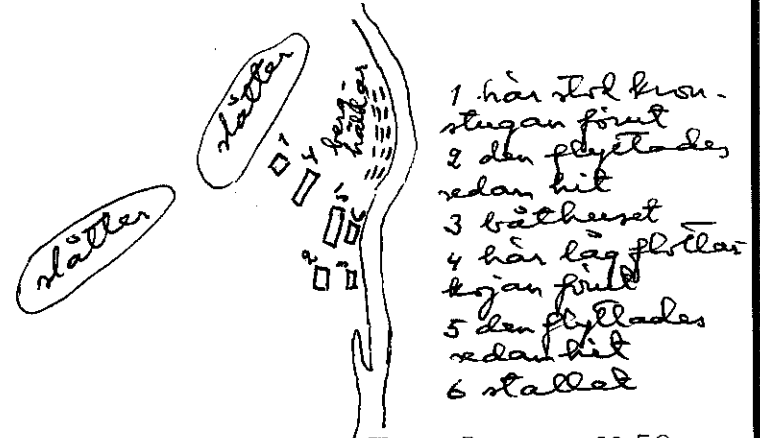 slåtter
slåtter
berg-
hällar
1
4
5
6
2
3
1 här stod kron-
stugan förut
2 den flyttades
sedan hit
3 båthuset
4 här låg flottar
kojan förut
5 den flyttades
sedan hit
6 stallet